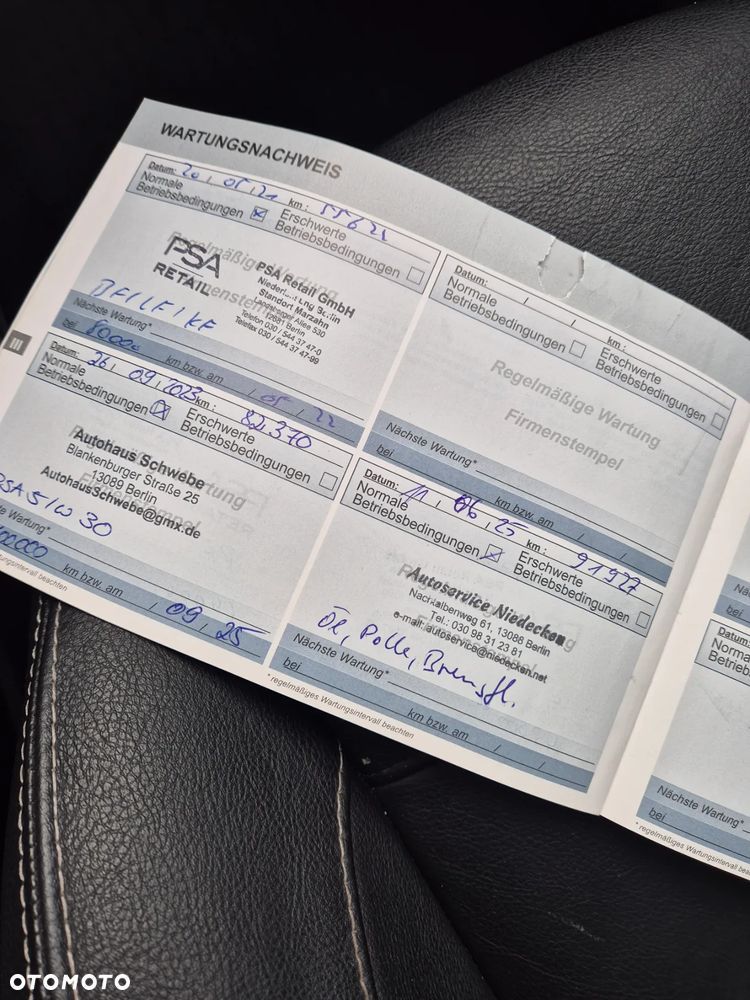 WARTUNGSNACHWEIS
Datum: 20, 05, 21 km: 55621
Normale Betriebsbedingungen Erschwerte Betriebsbedingungen
Regelmäßige Wartung
Firmenstempel
PSA
RETAIL
PSA Retail GmbH
Niederlassung Berlin
Standort Marzahn
Landsberger Allee 530
12681 Berlin
Telefon 030 / 544 37 47-0
Telefax 030 / 544 37 47-99
Nächste Wartung*
bei 80000 km bzw. am / 05 / 22
III
Datum: 26, 09, 2023 km: 82370
Normale Betriebsbedingungen Erschwerte Betriebsbedingungen
Autohaus Schwebe
Blankenburger Straße 25
13089 Berlin
AutohausSchwebe@gmx.de
PSA 5/W 30
te Wartung*
km bzw. am / 09, 25
tungsintervall beachten
Datum: / / km:
Normale Betriebsbedingungen Erschwerte Betriebsbedingungen
Regelmäßige Wartung
Firmenstempel
Nächste Wartung*
bei km bzw. am / /
Datum: 11, 06, 25 km: 91927
Normale Betriebsbedingungen Erschwerte Betriebsbedingungen
Autoservice Niedecken
Nachtalbenweg 61, 13088 Berlin
Tel.: 030 98 31 23 81
e-mail: autoservice@niedecken.net
Öl, Polle, Bremsfl.
Nächste Wartung*
bei km bzw. am / /
* regelmäßiges Wartungsintervall beachten
Nä
bei
Datum:
Normale
Betriebsbed
Nächste Wartung*
bei
* regelmäßiges Wartungsintervall beach
OTOMOTO